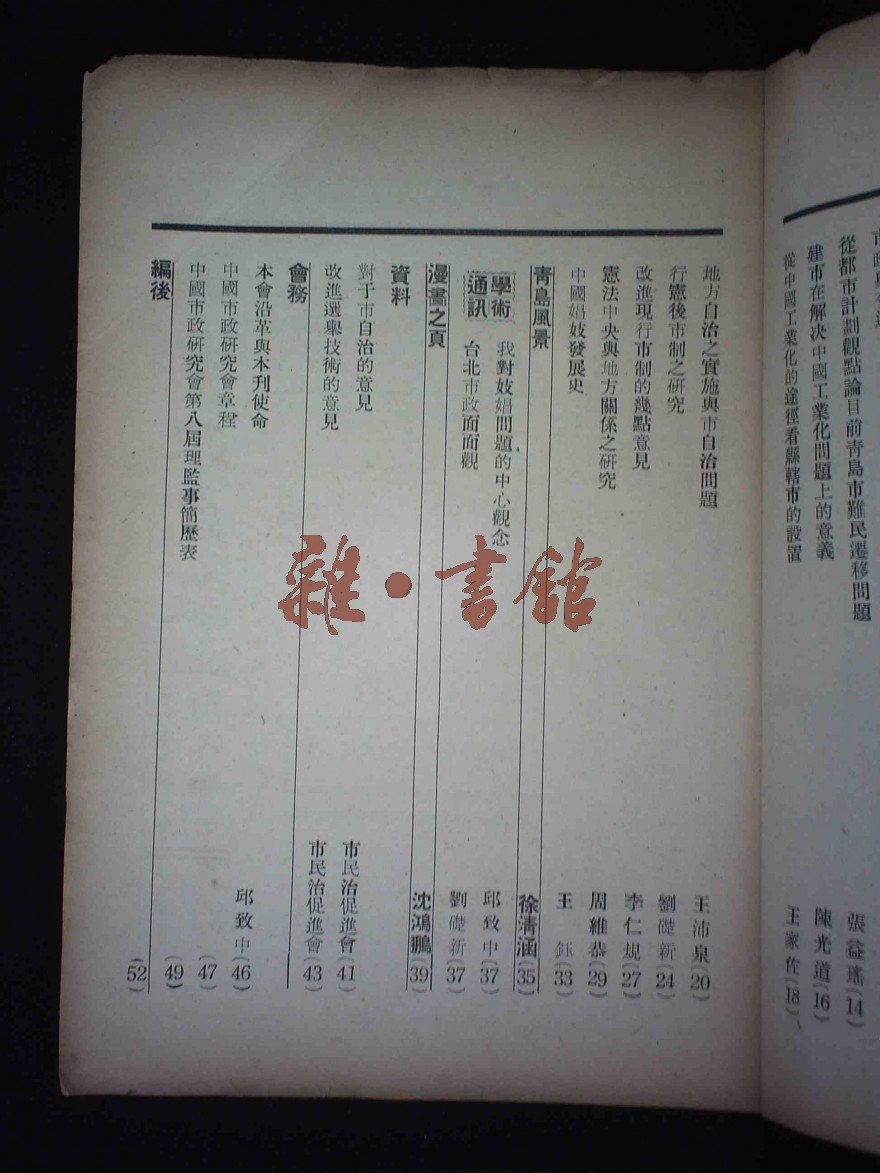 從都市計劃觀點論目前青島市難民遷移問題 張益瑤(14)
建市在解決中國工業化問題上的意義 陳光道(16)
從中國工業化的途徑看縣轄市的設置 王家佐(18)
地方自治之實施與市自治問題 王沛泉(20)
行憲後市制之研究 劉礎新(24)
改進現行市制的幾點意見 李仁規(27)
憲法中央與地方關係之研究 周維恭(29)
中國娼妓發展史 王鈺(33)
青島風景 徐清涵(35)
學術通訊
我對妓娼問題的中心觀念 邱致中(37)
台北市政面面觀 劉礎新(37)
漫畫之頁 沈鴻鵬(39)
資料
對于市自治的意見 市民治促進會(41)
改進選舉技術的意見 市民治促進會(43)
會務
本會沿革與本刋使命 邱致中(46)
中國市政研究會章程 (47)
中國市政研究會第八屆理監事簡歷表 (49)
編後 (52)
雜·書館